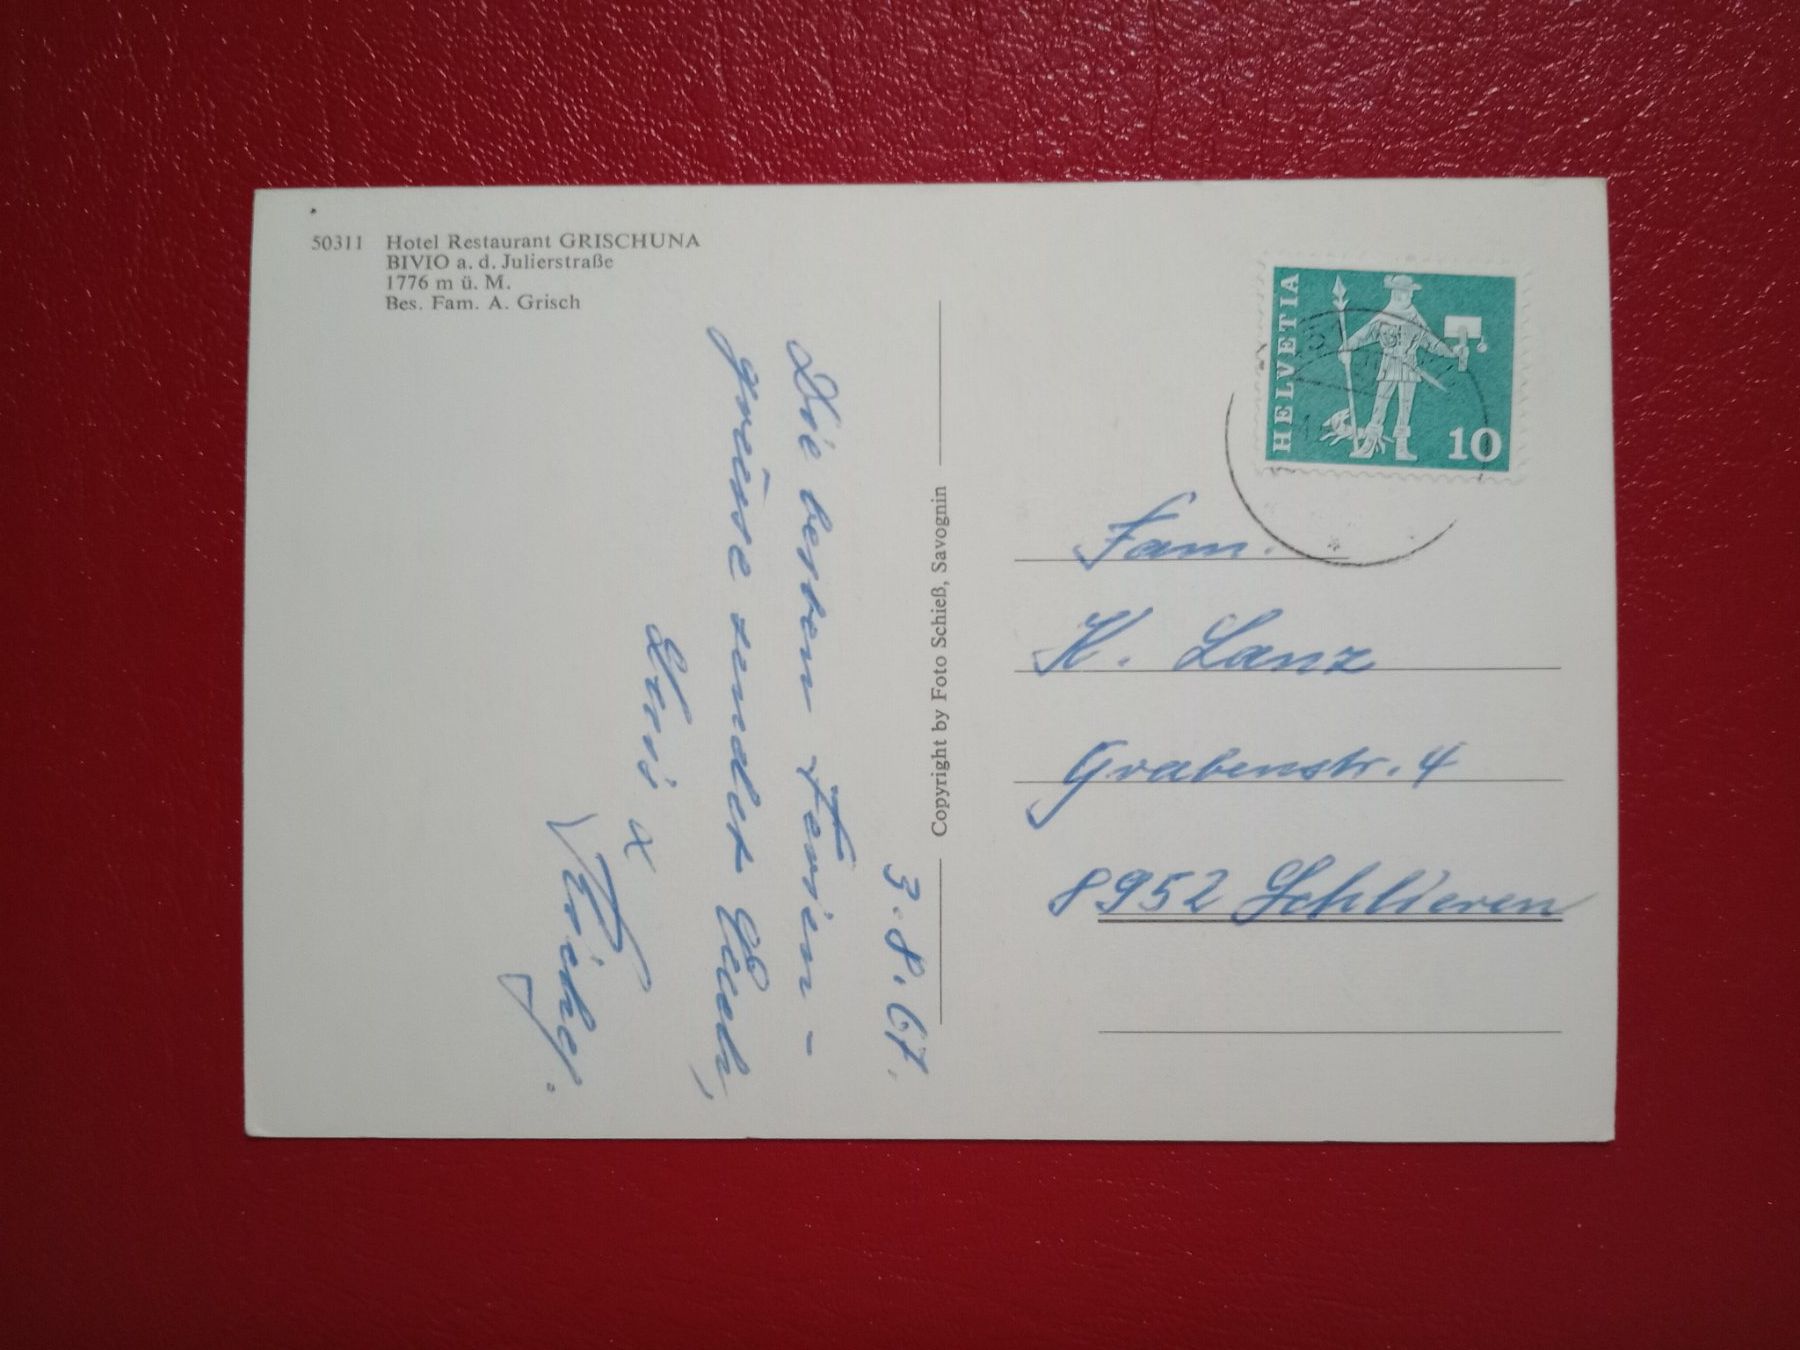 50311 Hotel Restaurant GRISCHUNA
BIVIO a. d. Julierstraße
1776 m ü. M.
Bes. Fam. A. Grisch
3. 8. 67.
Die besten Ferien-
grüsse sendet Euch,
Copyright by Foto Schieß, Savognin
HELVETIA
10
Fam.
K. Lanz
Grabenstr. 4
8952 Schlieren